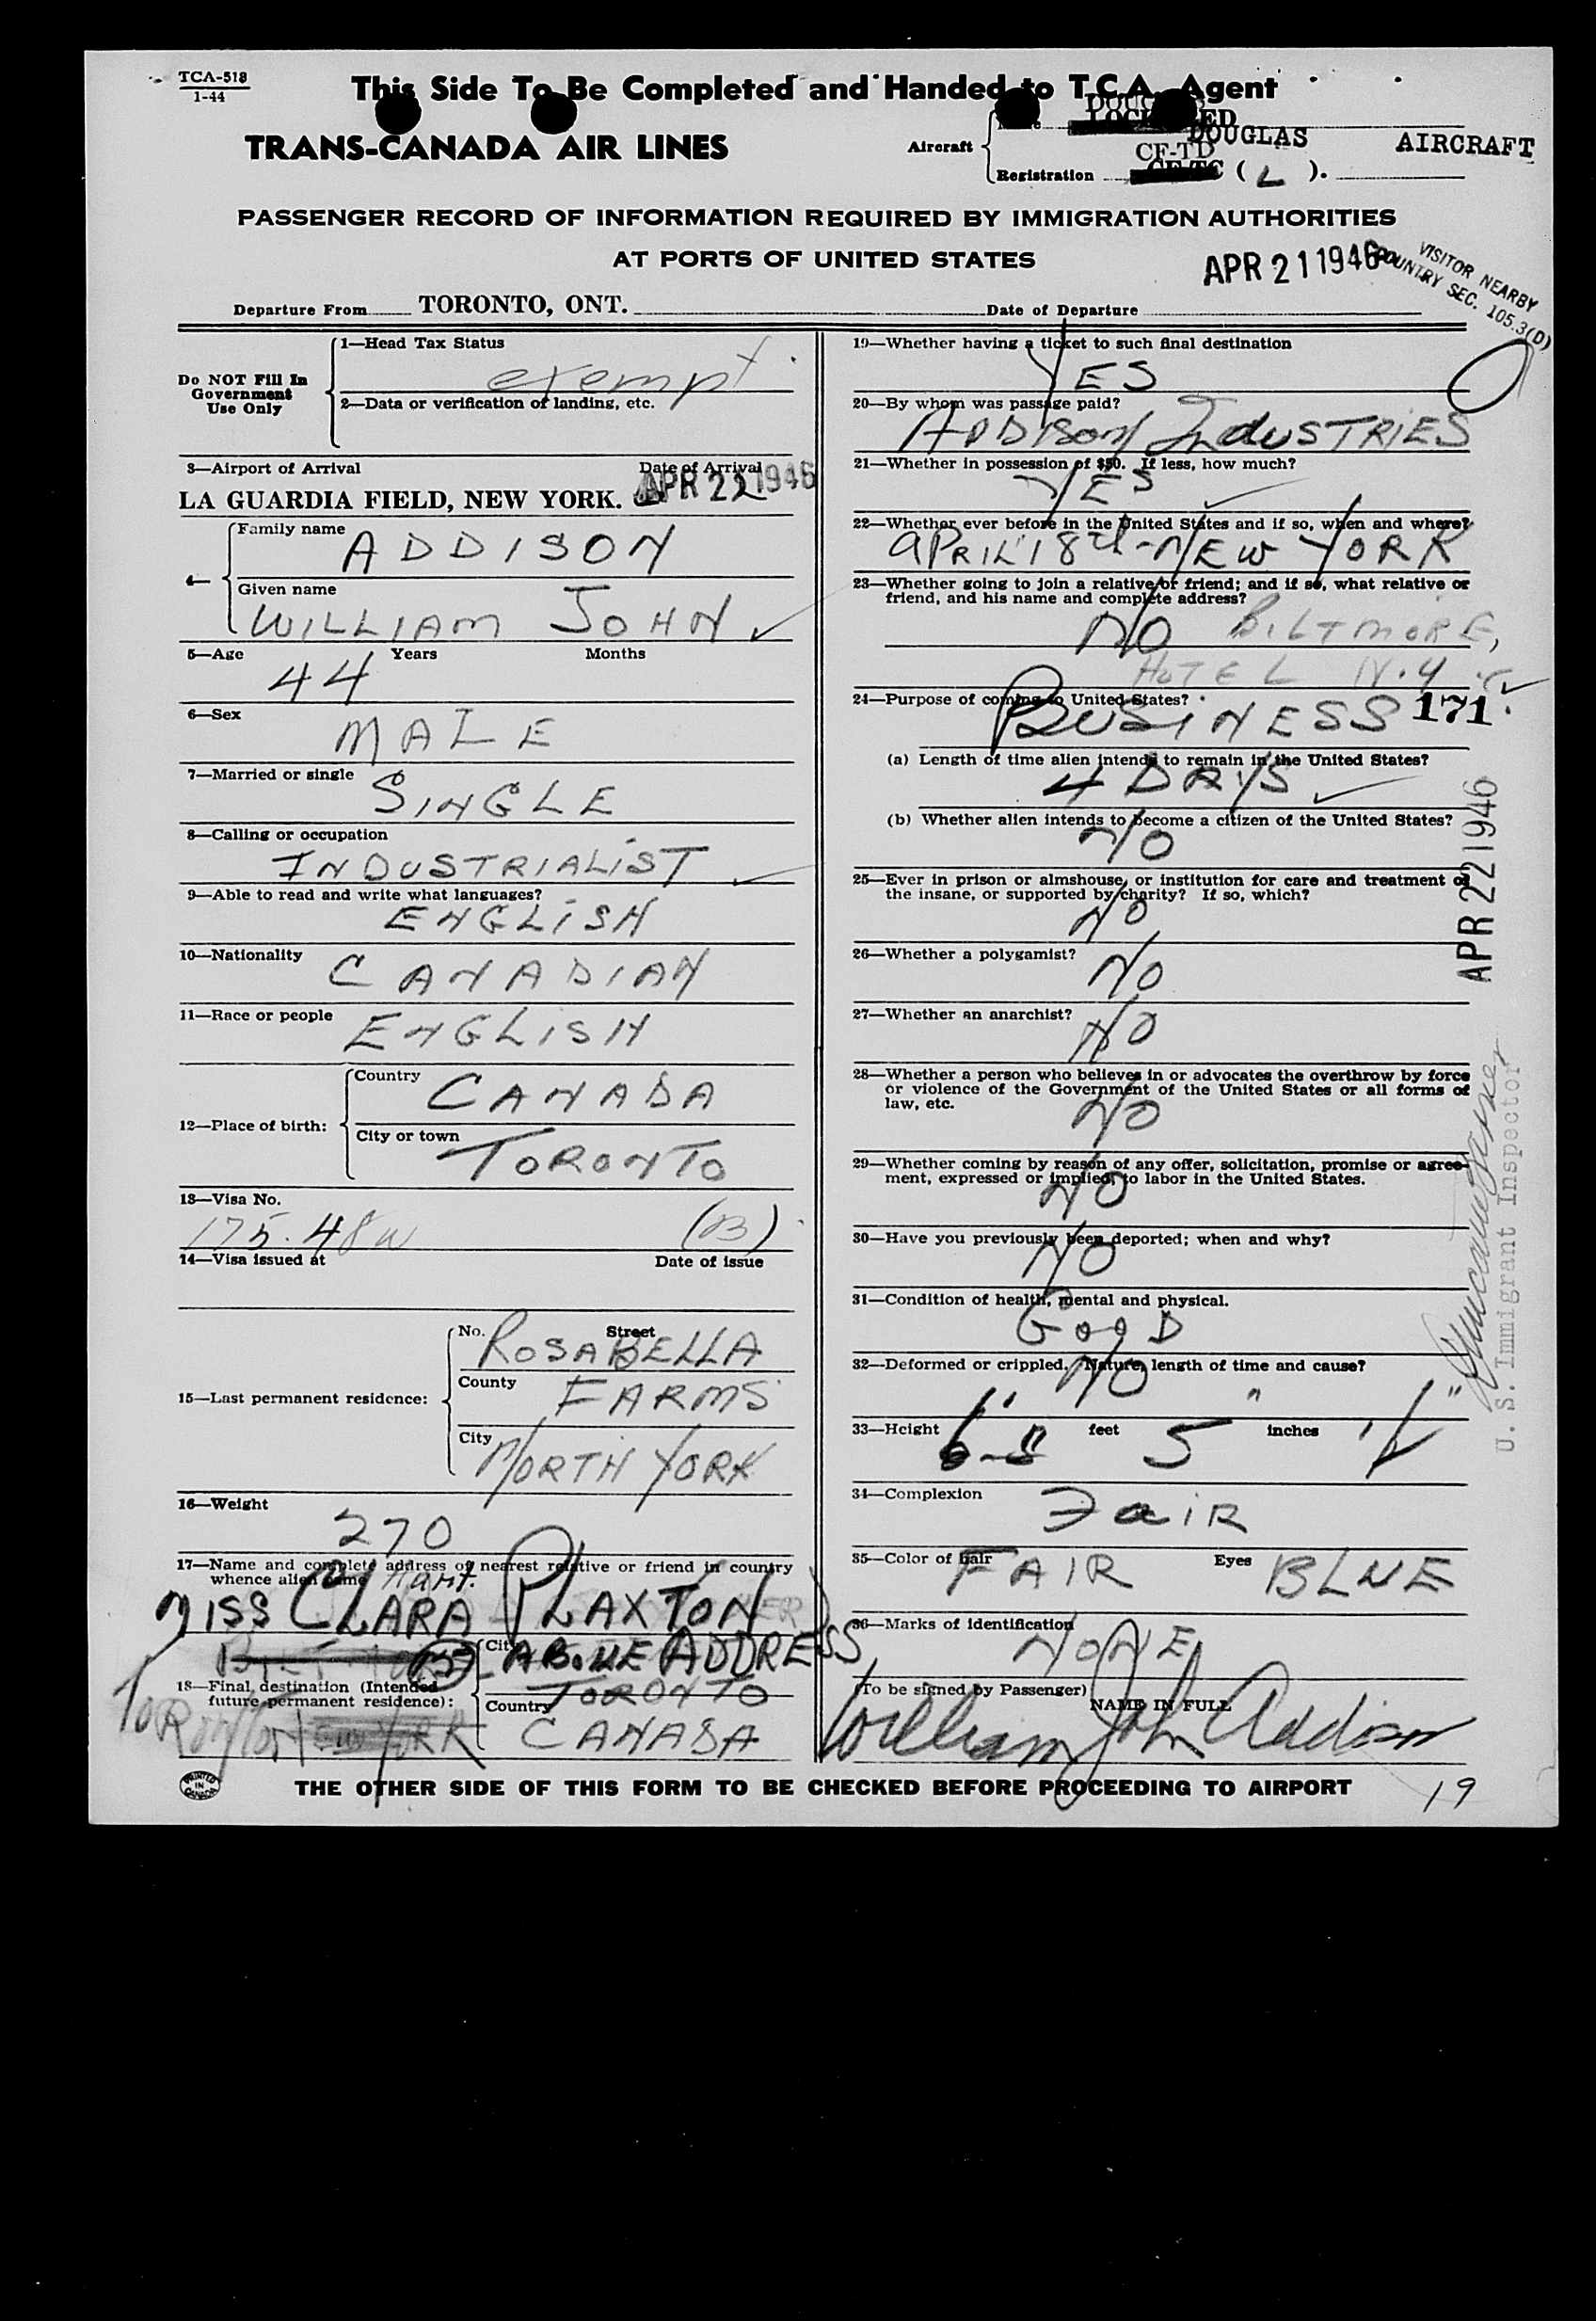 TCA-518
1-44
This Side To Be Completed and Handed to T.C.A. Agent
TRANS-CANADA AIR LINES
Aircraft
DOUGLAS AIRCRAFT
CF-TD
Registration
( L ).
PASSENGER RECORD OF INFORMATION REQUIRED BY IMMIGRATION AUTHORITIES
AT PORTS OF UNITED STATES
APR 21 1946
VISITOR NEARBY
COUNTRY SEC. 105.3(D)
Departure From TORONTO, ONT. Date of Departure
Do NOT Fill In
Government
Use Only
1—Head Tax Status
exempt
2—Data or verification of landing, etc.
3—Airport of Arrival Date of Arrival
LA GUARDIA FIELD, NEW YORK. APR 22 1946
4—
Family name
ADDISON
Given name
WILLIAM JOHN
5—Age Years Months
44
6—Sex
MALE
7—Married or single
SINGLE
8—Calling or occupation
INDUSTRIALIST
9—Able to read and write what languages?
ENGLISH
10—Nationality
CANADIAN
11—Race or people
ENGLISH
12—Place of birth:
Country
CANADA
City or town
TORONTO
13—Visa No.
175.48w (B)
14—Visa issued at Date of issue
15—Last permanent residence:
No. Street
ROSABELLA
County
FARMS
City
NORTH YORK
16—Weight
270
17—Name and complete address of nearest relative or friend in country
whence alien came
Aunt.
MISS CLARA PLAXTON
City
ABOVE ADDRESS
18—Final destination (Intended
future permanent residence):
TORONTO
Country
TORONTO
CANADA
19—Whether having a ticket to such final destination
YES
20—By whom was passage paid?
ADDISON INDUSTRIES
21—Whether in possession of $50. If less, how much?
YES
22—Whether ever before in the United States and if so, when and where?
APRIL 18th - NEW YORK
23—Whether going to join a relative or friend; and if so, what relative or
friend, and his name and complete address?
NO BILTMORE,
HOTEL N.Y.C
24—Purpose of coming to United States?
BUSINESS 171
(a) Length of time alien intends to remain in the United States?
4 DAYS
(b) Whether alien intends to become a citizen of the United States?
NO
25—Ever in prison or almshouse, or institution for care and treatment of
the insane, or supported by charity? If so, which?
NO
26—Whether a polygamist?
NO
27—Whether an anarchist?
NO
28—Whether a person who believes in or advocates the overthrow by force
or violence of the Government of the United States or all forms of
law, etc.
NO
29—Whether coming by reason of any offer, solicitation, promise or agree-
ment, expressed or implied, to labor in the United States.
NO
30—Have you previously been deported; when and why?
NO
31—Condition of health, mental and physical.
GOOD
32—Deformed or crippled. Nature, length of time and cause?
NO
33—Height feet 5 inches
34—Complexion
FAIR
35—Color of hair FAIR Eyes BLUE
36—Marks of identification
NONE
(To be signed by Passenger)
NAME IN FULL
William John Addison
APR 22 1946
U. S. Immigrant Inspector
PRINTED
IN
CANADA
THE OTHER SIDE OF THIS FORM TO BE CHECKED BEFORE PROCEEDING TO AIRPORT
19